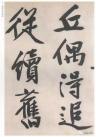 丘偶得追
從續舊